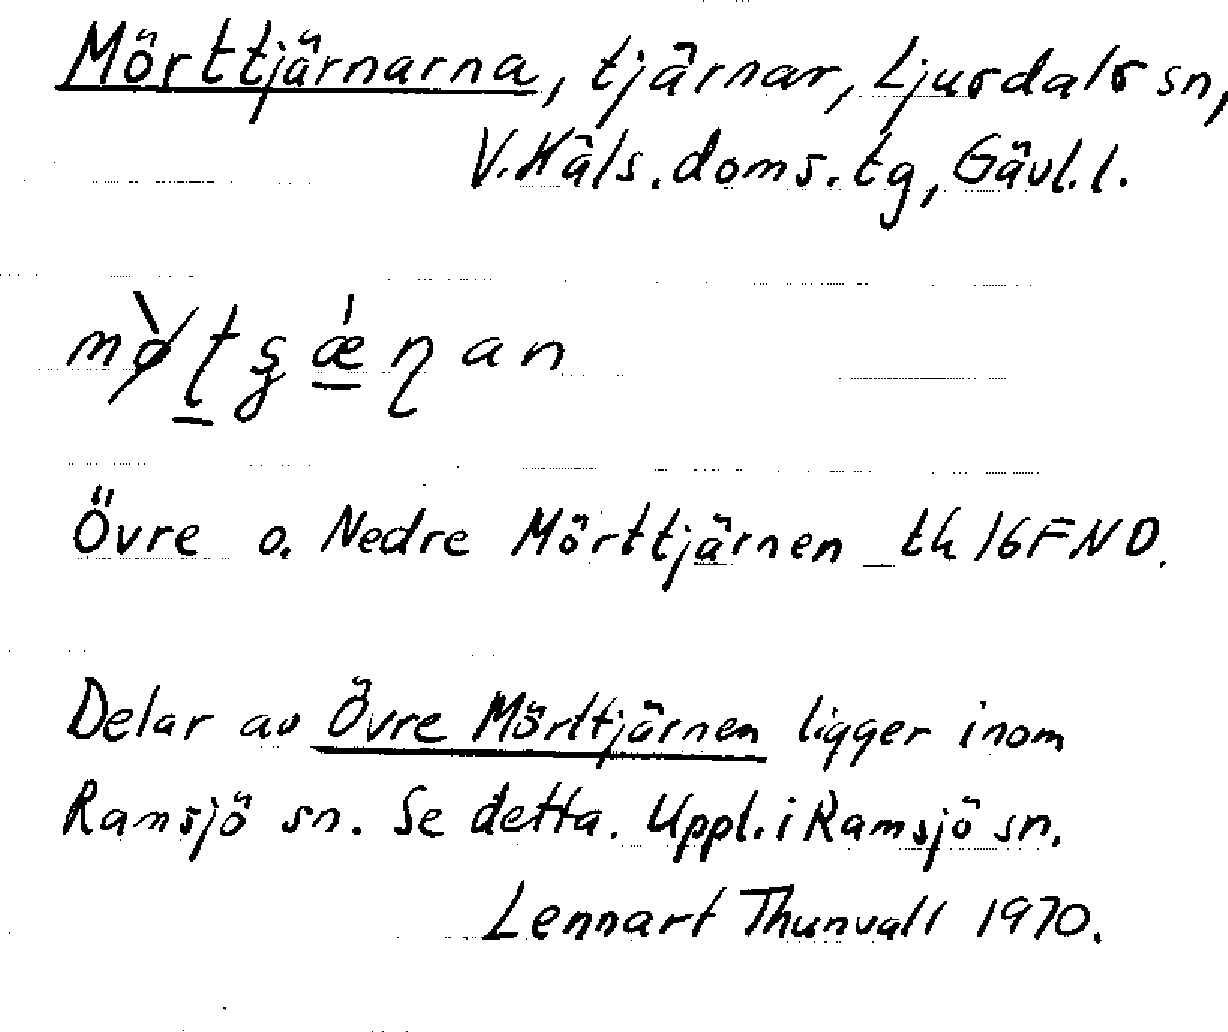 Mörttjärnarna, tjärnar, Ljusdals sn,
V. Häls. doms. tg, Gävl. l.
Övre o. Nedre Mörttjärnen tk 16F NO.
Delar av Övre Mörttjärnen ligger inom
Ramsjö sn. Se detta. Uppl. i Ramsjö sn.
Lennart Thunvall 1970.